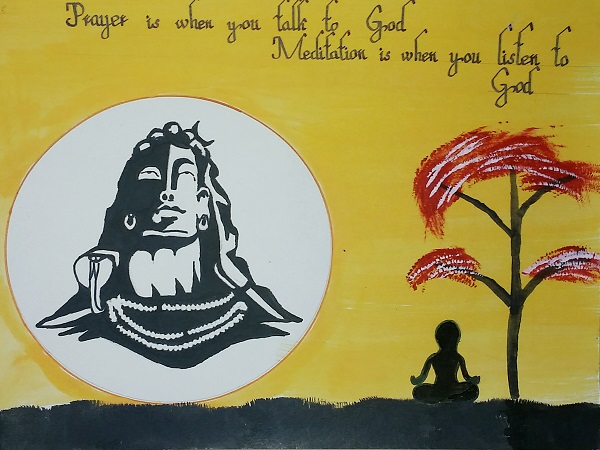 Prayer is when you talk to God
Meditation is when you listen to
God